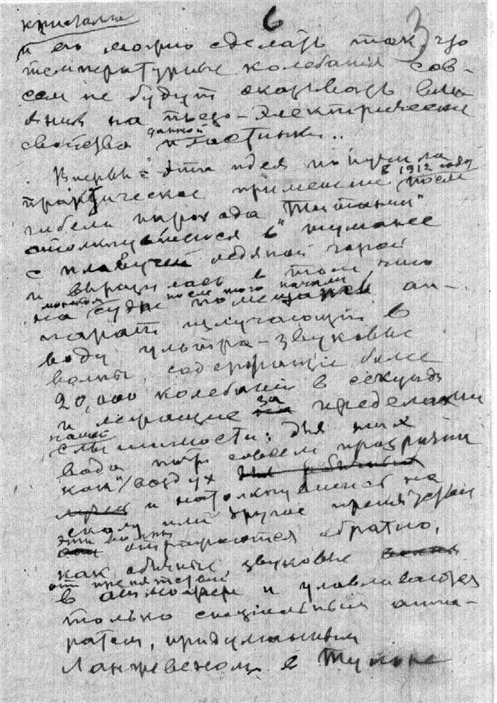 6 3
кристалла
и его можно сделать так, что
температурные колебания сов-
сем не будут оказывать влия-
ния на пьезо-электрические
данной
свойства пластинки..
Впервые эта идея получила
в 1912 году
практическое применение после
гибели парохода "Титаник"
столкнувшегося в тумане
с плавучей ледяной горой
и выразилась в том что
после того начали
на судах помещать ап-
парат излучающий в
воду ультра-звуковые
волны, содержащие более
20,000 колебаний в секунду
и лежащие за пределами
нашей
слышимости; для них
вода совсем прозрачна
как воздух
и натолкнувшись на
скалу или другое препятствие
эти волны
отражаются обратно,
как обычные, звуковые
от препятствий
в атмосфере и улавливаются
только специальным аппа-
ратом, придуманным
Ланжевеном в Тулоне